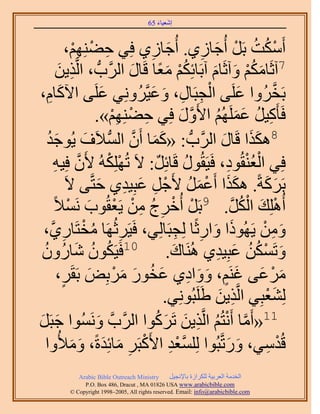 إشعياء 65
أَسْكُتُ بَلْ أُجَازِي. أُجَازِي فِي حِضْنِهِمْ،
7آثَامَكُمْ وَآثَامَ آبَائِكُمْ مَعًا قَالَ الرَّبُّ، الَّذِينَ
بَخَّرُوا عَلَى الْجِبَالِ، وَعَيَّرُونِي عَلَى الآكَامِ،
فَأَكِيلُ عَمَلَهُمُ الأَوَّلَ فِي حِضْنِهِمْ».
8هكَذَا قَالَ الرَّبُّ: «كَمَا أَنَّ السُّلاَفَ يُوجَدُ
فِي الْعُنْقُودِ، فَيَقُولُ قَائِلٌ: لاَ تُهْلِكْهُ لأَنَّ فِيهِ
بَرَكَةً. هكَذَا أَعْمَلُ لأَجْلِ عَبِيدِي حَتَّى لاَ
أُهْلِكَ الْكُلَّ. 9بَلْ أُخْرِجُ مِنْ يَعْقُوبَ نَسْلاً
وَمِنْ يَهُوذَا وَارِثًا لِجِبَالِي، فَيَرِثُهَا مُخْتَارِيَّ،
وَتَسْكُنُ عَبِيدِي هُنَاكَ. 10فَيَكُونُ شَارُونُ
مَرْعَى غَنَمٍ، وَوَادِي عَخُورَ مَرْبِضَ بَقَرٍ،
لِشَعْبِي الَّذِينَ طَلَبُونِي.
11«أَمَّا أَنْتُمُ الَّذِينَ تَرَكُوا الرَّبَّ وَنَسُوا جَبَلَ
قُدْسِي، وَرَتَّبُوا لِلسَّعْدِ الأَكْبَرِ مَائِدَةً، وَمَلأُوا
الخدمة العربية للكرازة بالإنجيل Arabic Bible Outreach Ministry
P.O. Box 486, Dracut , MA 01826 USA www.arabicbible.com
© Copyright 1998-2005, All rights reserved. Email: info@arabicbible.com